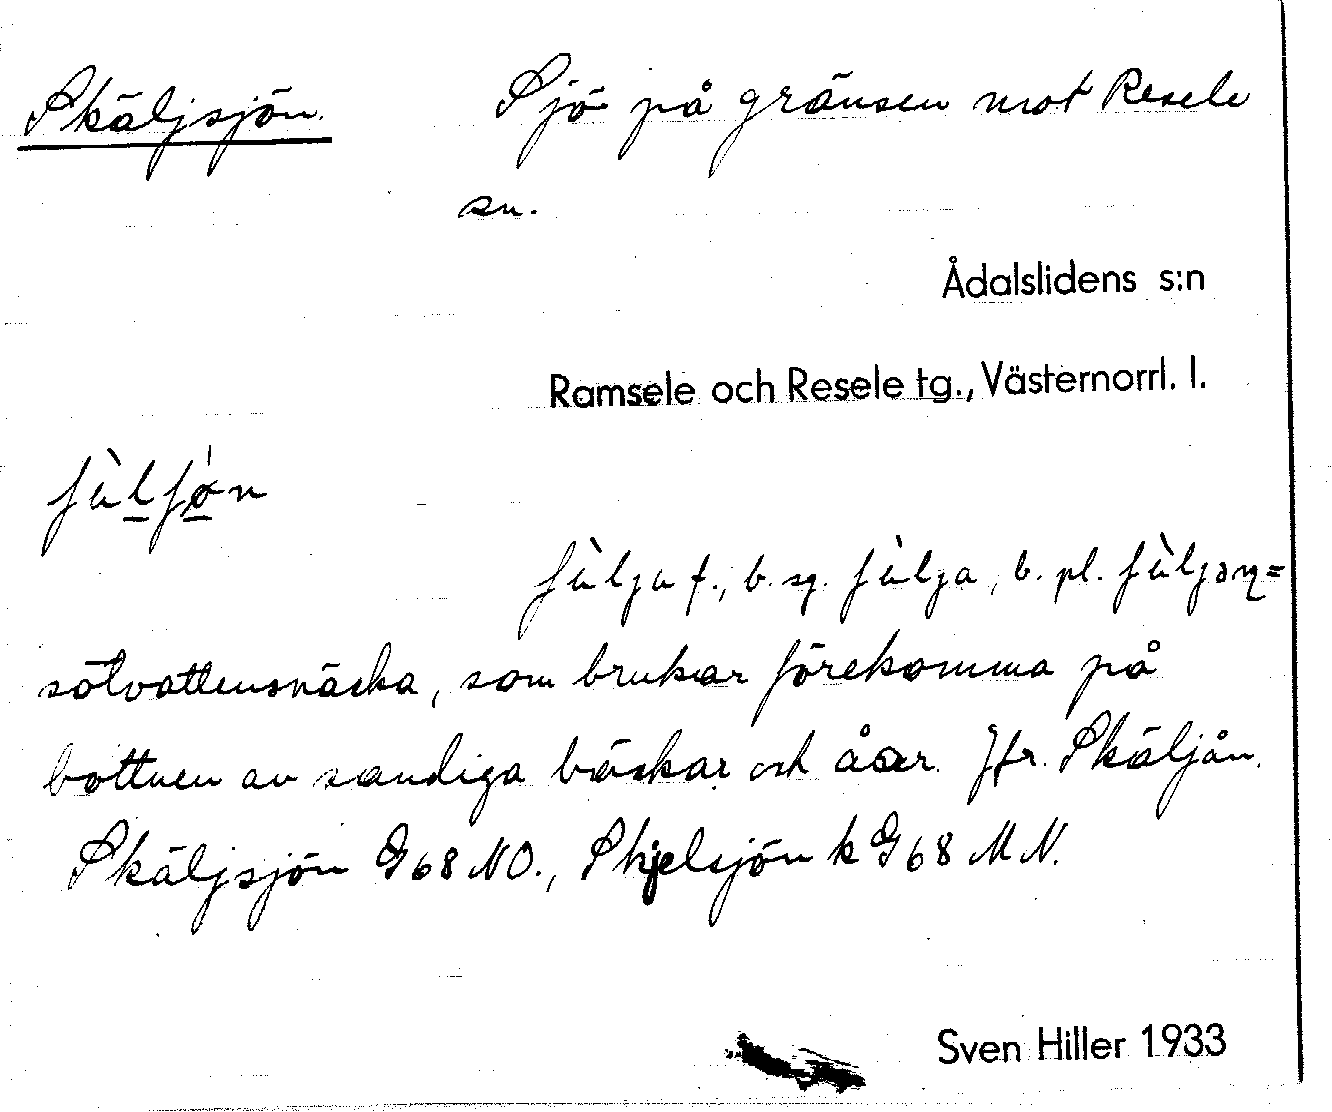 Skäljsjön. Sjö på gränsen mot Resele
sn.
Ådalslidens s:n
Ramsele och Resele tg., Västernorrl. l.
f., b. sg. , b. pl. =
sötvattensnäcka, som brukar förekomma på
bottnen av sandiga bäckar och åar. Jfr. Skäljån.
Skäljsjön G68 NO., Skjelsjön k G68 M N.
Sven Hiller 1933